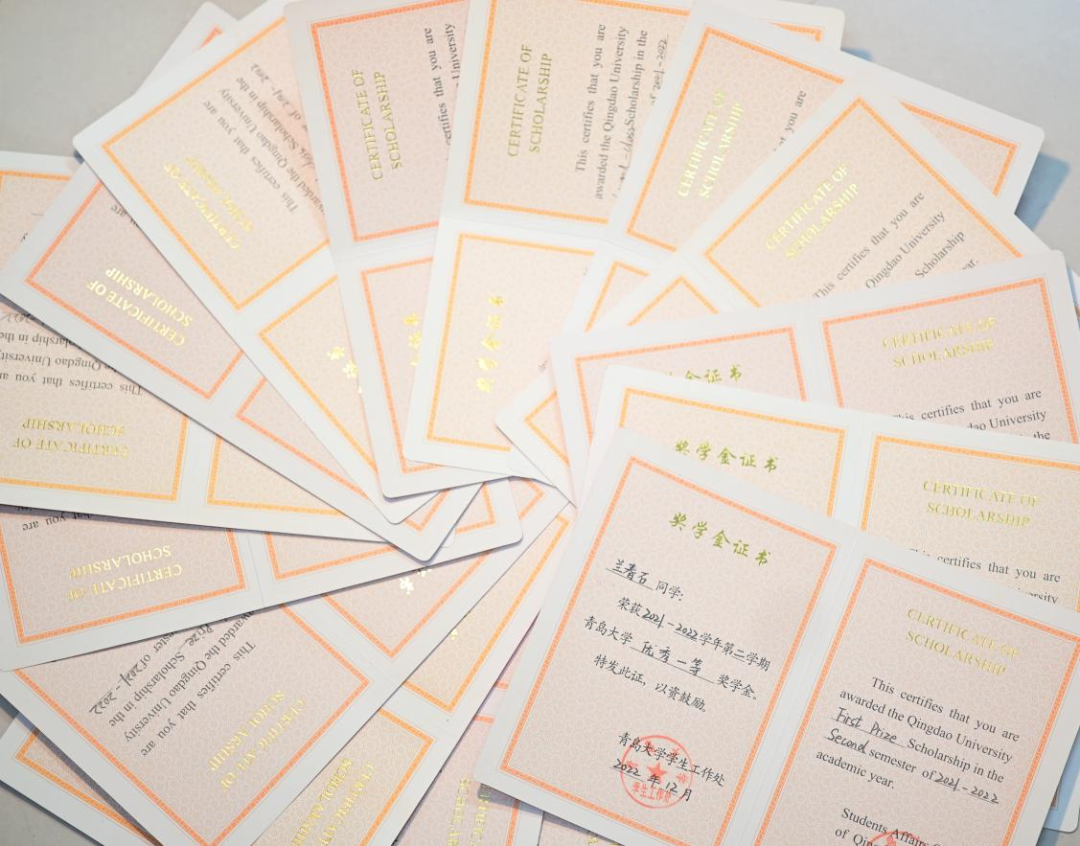 CERTIFICATE OF
SCHOLARSHIP
This certifies that you are
awarded the Qingdao University
Scholarship in the
of 2021-2022
CERTIFICATE OF
SCHOLARSHIP
certifies that you are
University
CERTIFICATE OF
SCHOLARSHIP
This certifies that you are
awarded the Qingdao University
Scholarship in the
of 2021-2022
奖学金证书
CERTIFICATE OF
SCHOLARSHIP
you are
CERTIFICATE OF
SCHOLARSHIP
This certifies that you are
Qingdao University
Scholarship
CERTIFICATE OF
SCHOLARSHIP
This certifies that you are
Qingdao University
the
金证书
CERTIFICATE OF
SCHOLARSHIP
This certifies that you are
奖学金证书
CERTIFICATE OF
SCHOLARSHIP
This certifies that you are
Qingdao University
Scholarship in the
CERTIFICATE OF
SCHOLARSHIP
CERTIFICATE OF
SCHOLARSHIP
that you are
CERTIFICATE OF
SCHOLARSHIP
This certifies that you are
awarded the Qingdao University
Prize Scholarship in the
of 2021-2022
奖学金证书
兰青石 同学:
荣获2021-2022学年第二学期
青岛大学 优秀一等 奖学金。
特发此证,以资鼓励。
青岛大学学生工作处
2022年12月
学生工作处
CERTIFICATE OF
SCHOLARSHIP
This certifies that you are
awarded the Qingdao University
First Prize Scholarship in the
Second semester of 2021-2022
academic year.
Students Affairs
of